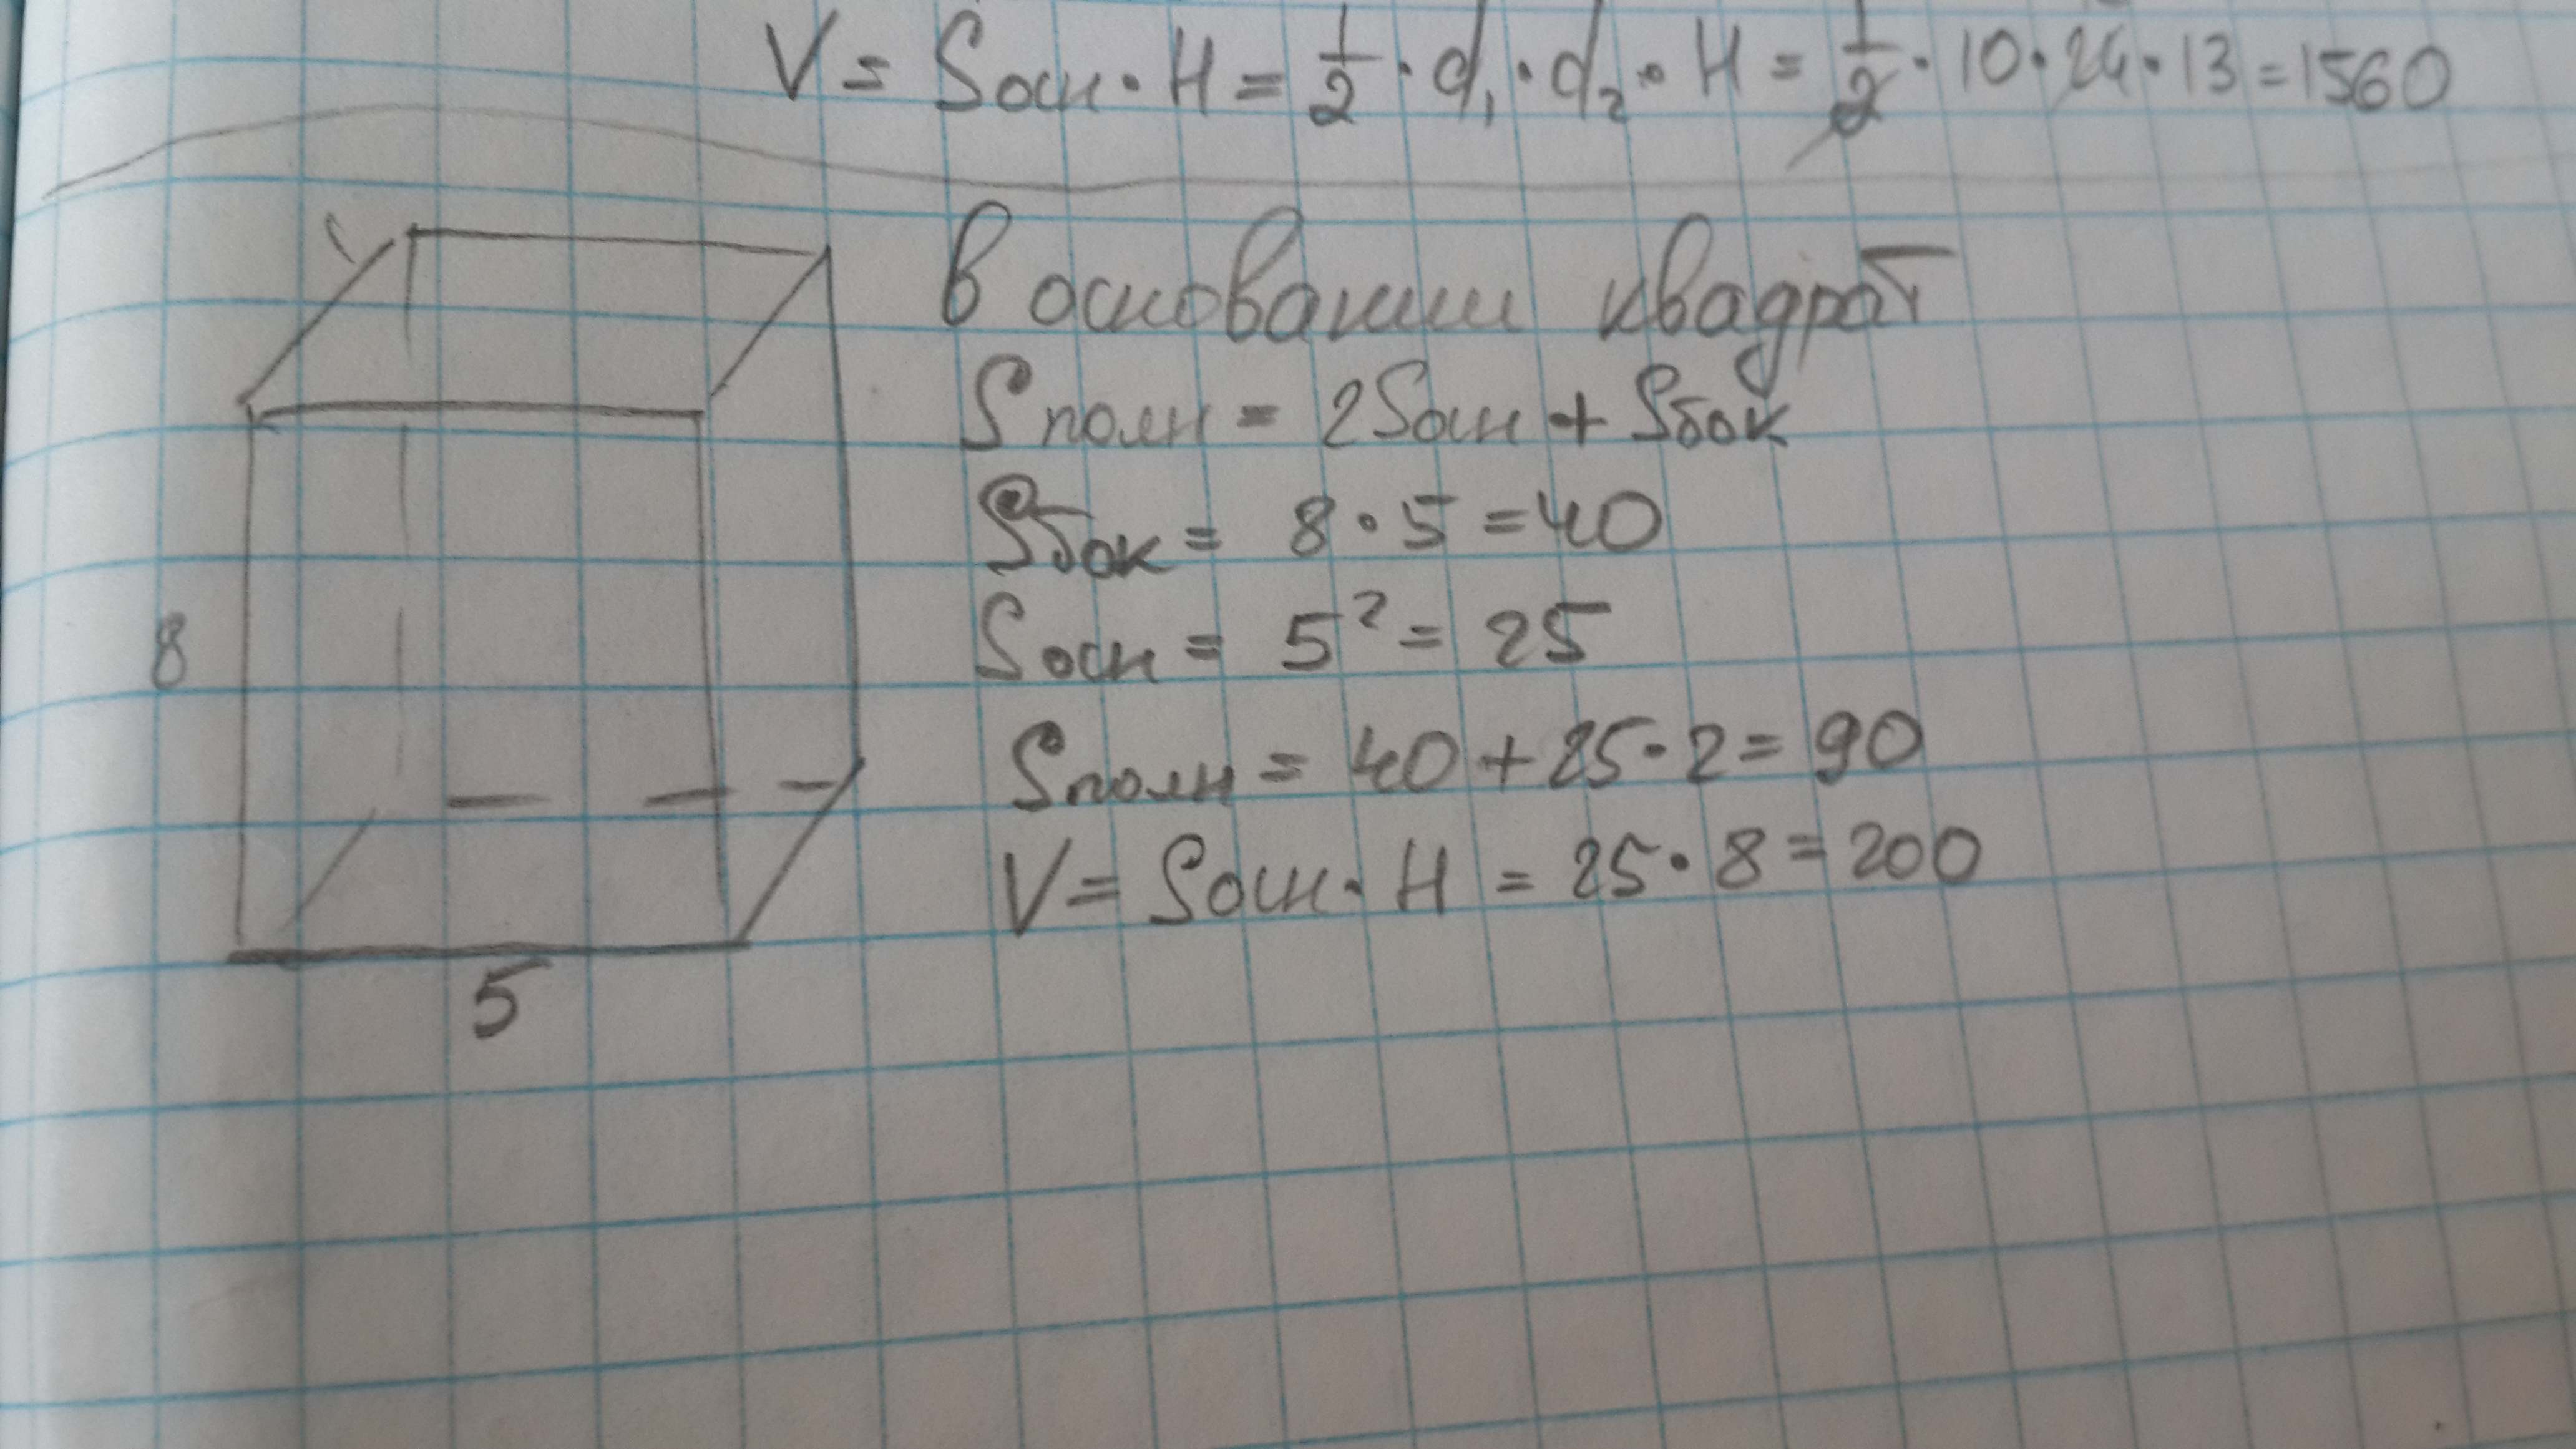 V = Sосн · H = 1/2 · d₁ · d₂ · H = 1/2 · 10 · 24 · 13 = 1560
В основании квадрат
Sполн = 2Sосн + Sбок
Sбок = 8 · 5 = 40
Sосн = 5² = 25
8
Sполн = 40 + 25 · 2 = 90
V = Sосн · H = 25 · 8 = 200
5